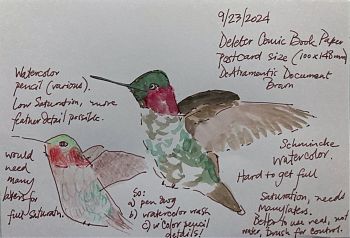 9/23/2024
Deleter Comic Book Paper
Postcard size (100x148mm)
DeAtramentis Document
Brown
Watercolor
pencil (various).
Low Saturation, more
feather detail possible.
would
need
many
layers for
full saturation.
So:
a) pen dwg
b) watercolor wash
c) w Color pencil
details!
Schmincke
Watercolor.
Hard to get full
Saturation, needs
many layers.
Better to use real, not
water, brush for control.